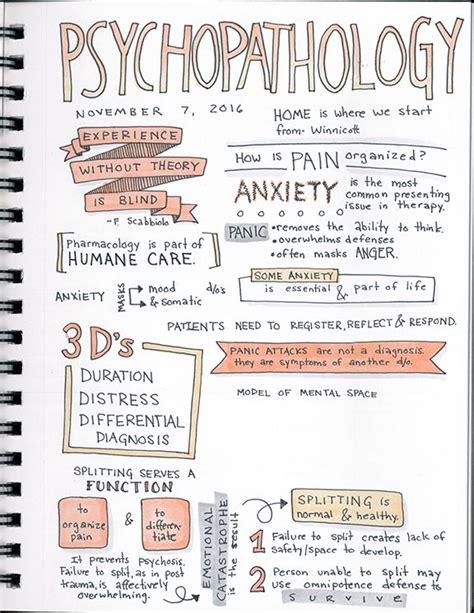 PSYCHOPATHOLOGY
NOVEMBER 7, 2016
HOME is where we start
from- Winnicott
EXPERIENCE
WITHOUT THEORY
IS BLIND
-F. Scabbiolo
HOW IS PAIN organized?
ANXIETY is the most
common presenting
issue in therapy.
PANIC •removes the ability to think.
•overwhelms defenses
•often masks ANGER.
[Pharmacology is part of
HUMANE CARE.]
SOME ANXIETY
is essential & part of life
ANXIETY MASKS mood d/o's
& somatic
PATIENTS NEED TO REGISTER, REFLECT & RESPOND.
3 D's
DURATION
DISTRESS
DIFFERENTIAL
DIAGNOSIS
PANIC ATTACKS are not a diagnosis.
they are symptoms of another d/o.
MODEL OF MENTAL SPACE
SPLITTING SERVES A
FUNCTION
to
organize
pain
&
to
differen-
tiate
It prevents psychosis.
Failure to split, as in post
trauma, is affectively
overwhelming.
EMOTIONAL
CATASTROPHE
is the result
SPLITTING is
normal & healthy.
1 Failure to split creates lack of
safety/space to develop.
2 Person unable to split may
use omnipotence defense to
SURVIVE